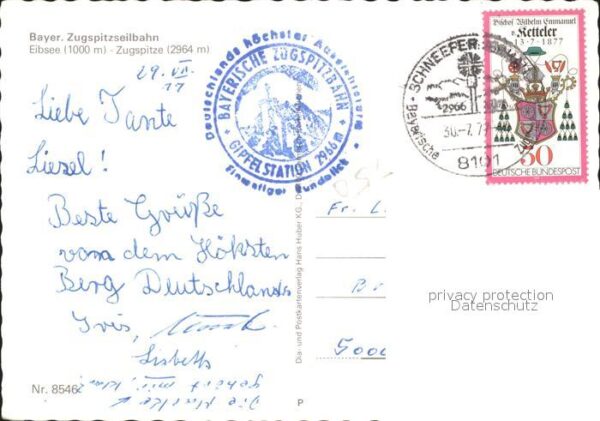 Bayer. Zugspitzseilbahn
Eibsee (1000 m) - Zugspitze (2964 m)
29. VII.
77
Liebe Tante
Liesel!
Beste Grüße
vom dem Höksten
Berg Deutschlands
Iris,
Lisbeth
gehört mir,
Die Marke
Nr. 8546
Deutschlands höchster Aussichtsturm
BAYERISCHE ZUGSPITZBAHN
GIPFELSTATION 2966 m
Einmaliger Rundblick
Dia- und Postkartenverlag Hans Huber KG.,
P
SCHNEEFERNER
2966
30.-7.77
Bayerische
8101
Bischof Wilhelm Emmanuel
v. Ketteler
13·7·1877
50
DEUTSCHE BUNDESPOST
Fr. L
B
5000
privacy protection
Datenschutz